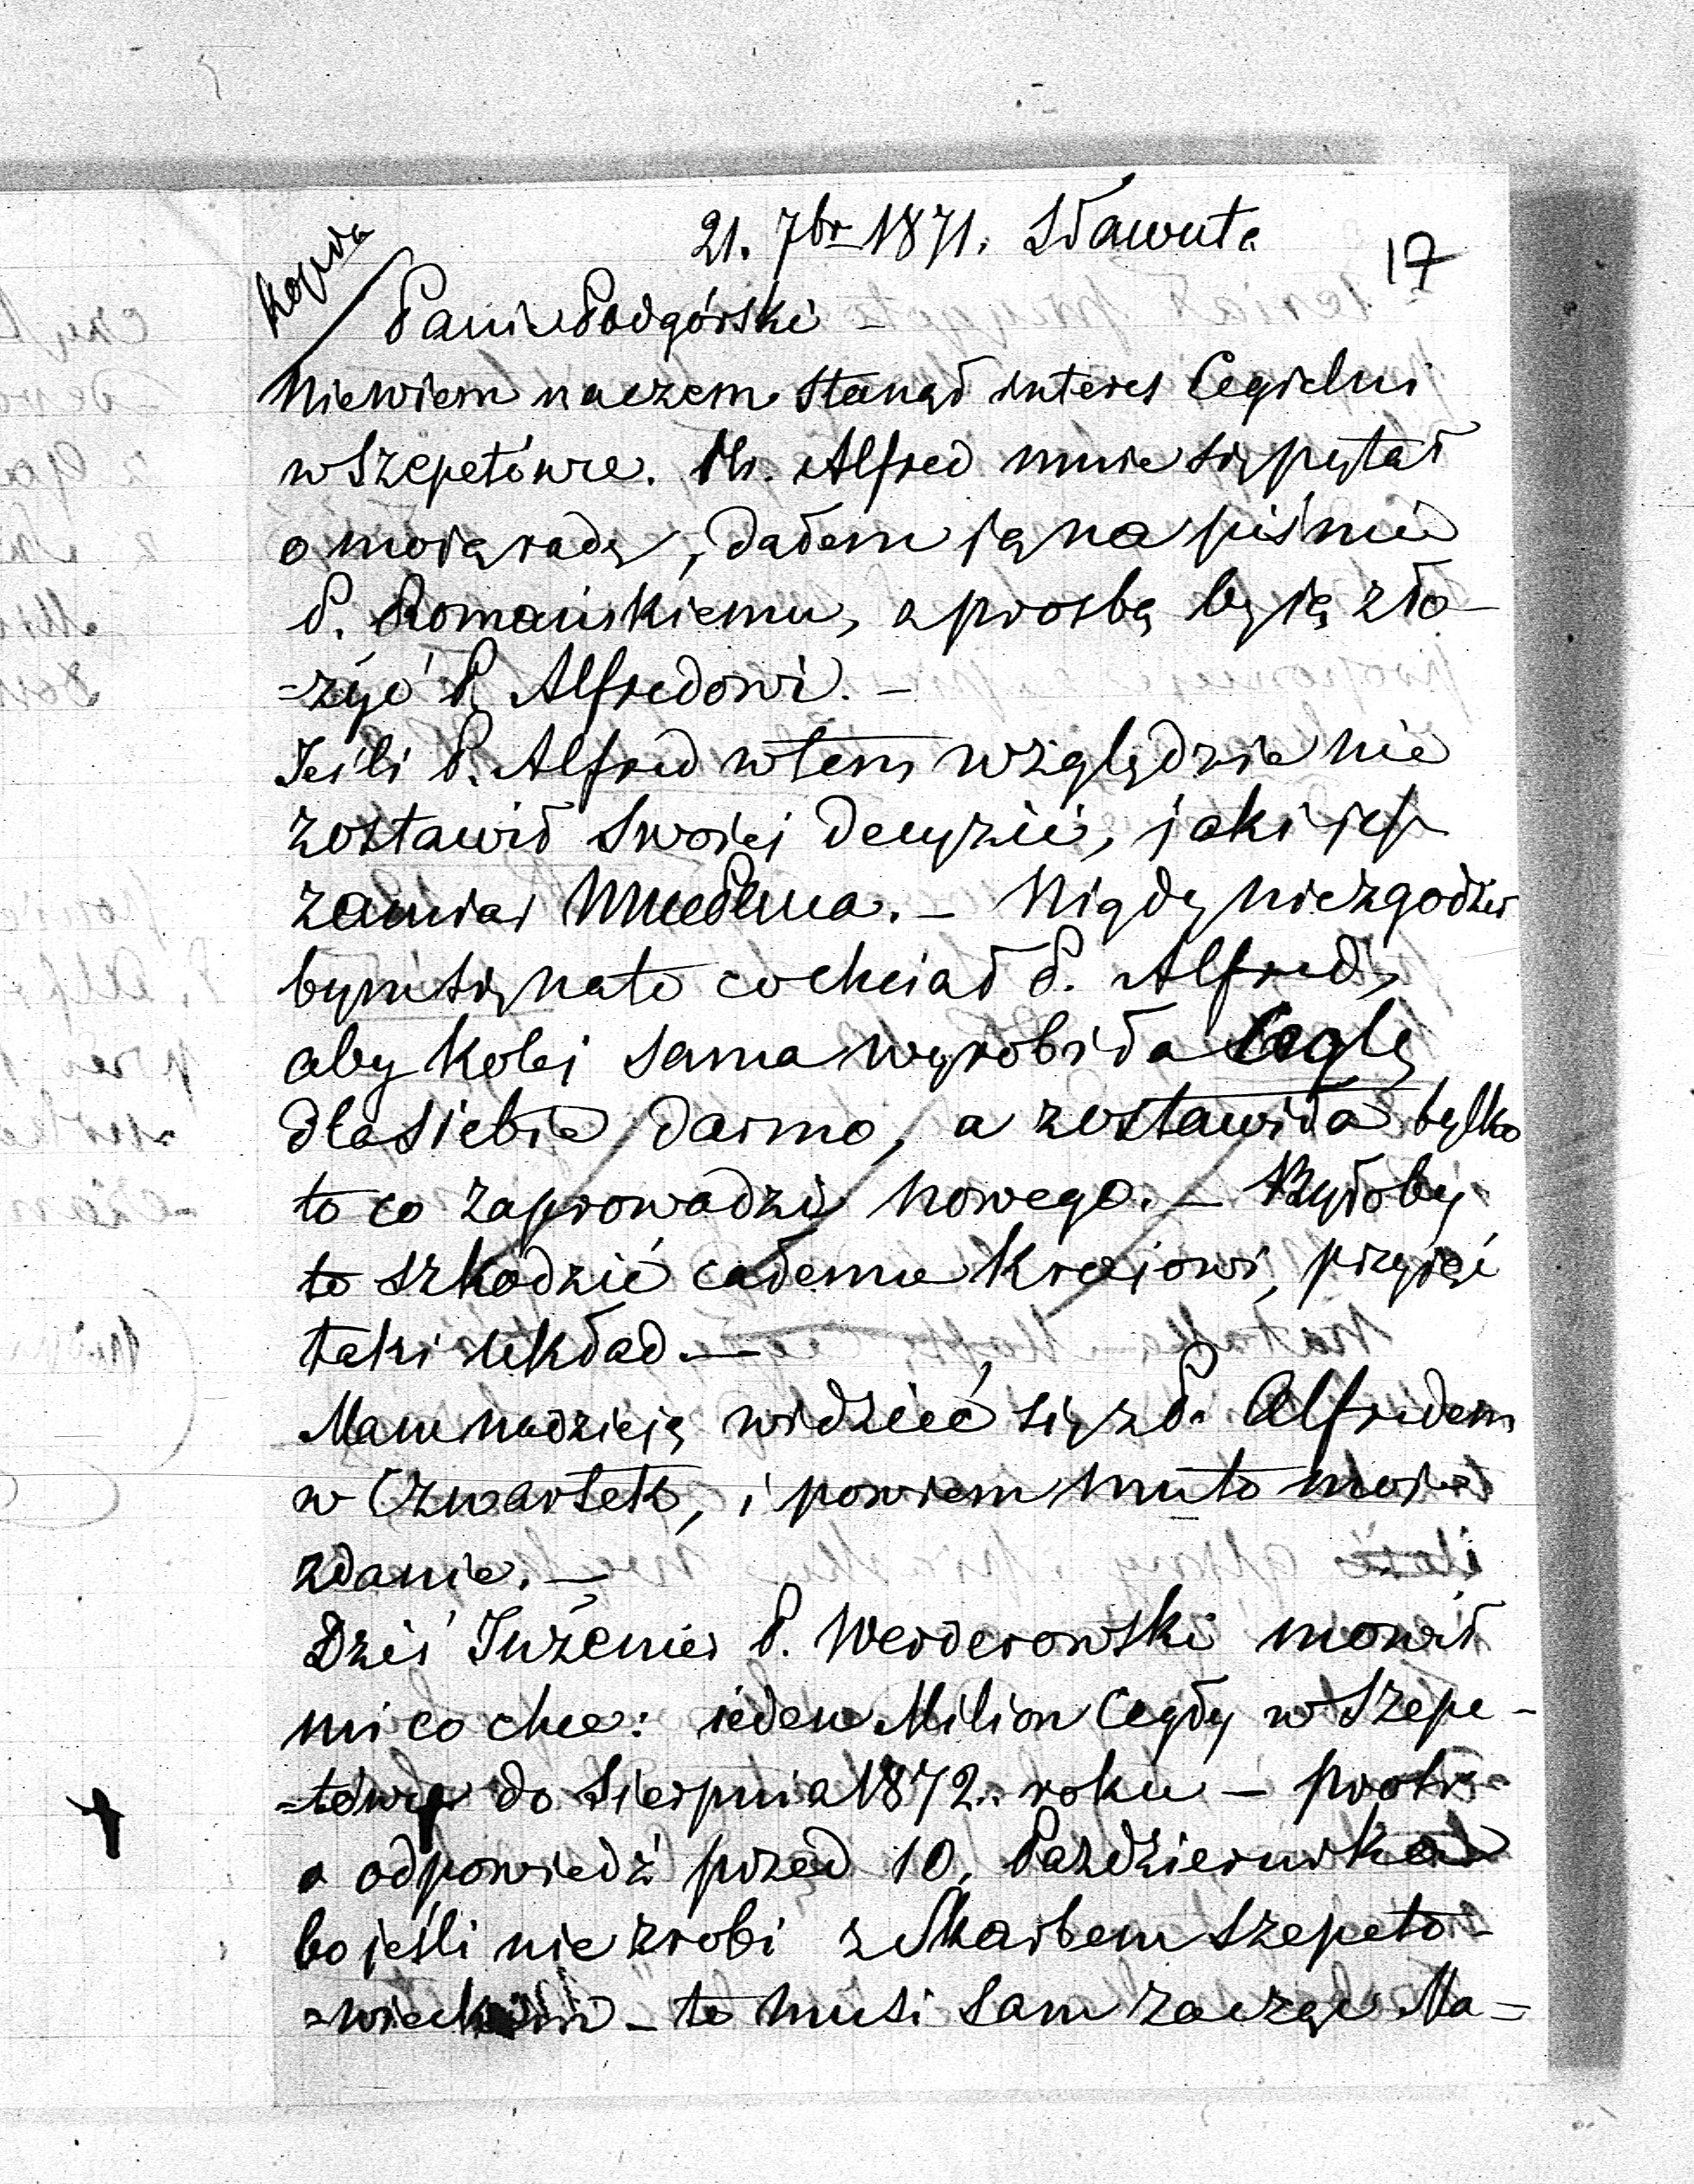 21. 7br 1871. Sławuta
17
Kopia
Panie Podgórski -
Niewiem naczem stanął interes Cegielni
w Szepetówce. Hr. Alfred mnie się pytał
o moią radę, dałem ią na piśmie
P. Romańskiemu, z prosbą by ią zło-
=żyć P. Alfredowi. -
Jeśli P. Alfred wtem względzie nie
zostawił swoiej decyzii, jaki jest
zamiar . - Nigdy niezgodził
bym się nato co chciał P. Alfred,
aby kolej sama wyrobiła Cegłę
dla siebie darmo, a zostawiła tylko
to co zaprowadzi nowego. - Byłoby
to szkodzić całemu Krajowi, przyjąć
taki układ. -
Mam nadzieję widzieć się z P. Alfredem
w Czwartek, i powiem mu to moie
zdanie. -
Dziś Inżenier P. Werderowski mowił
mi co chce: ieden Milion Cegły w Szepe-
=tówce do Sierpnia 1872. roku - prosi
o odpowiedź przed 10. Pazdziernika
bo jeśli nie zrobi z Skarbem Szepeto-
=wieckim - to musi sam zacząć Ma=